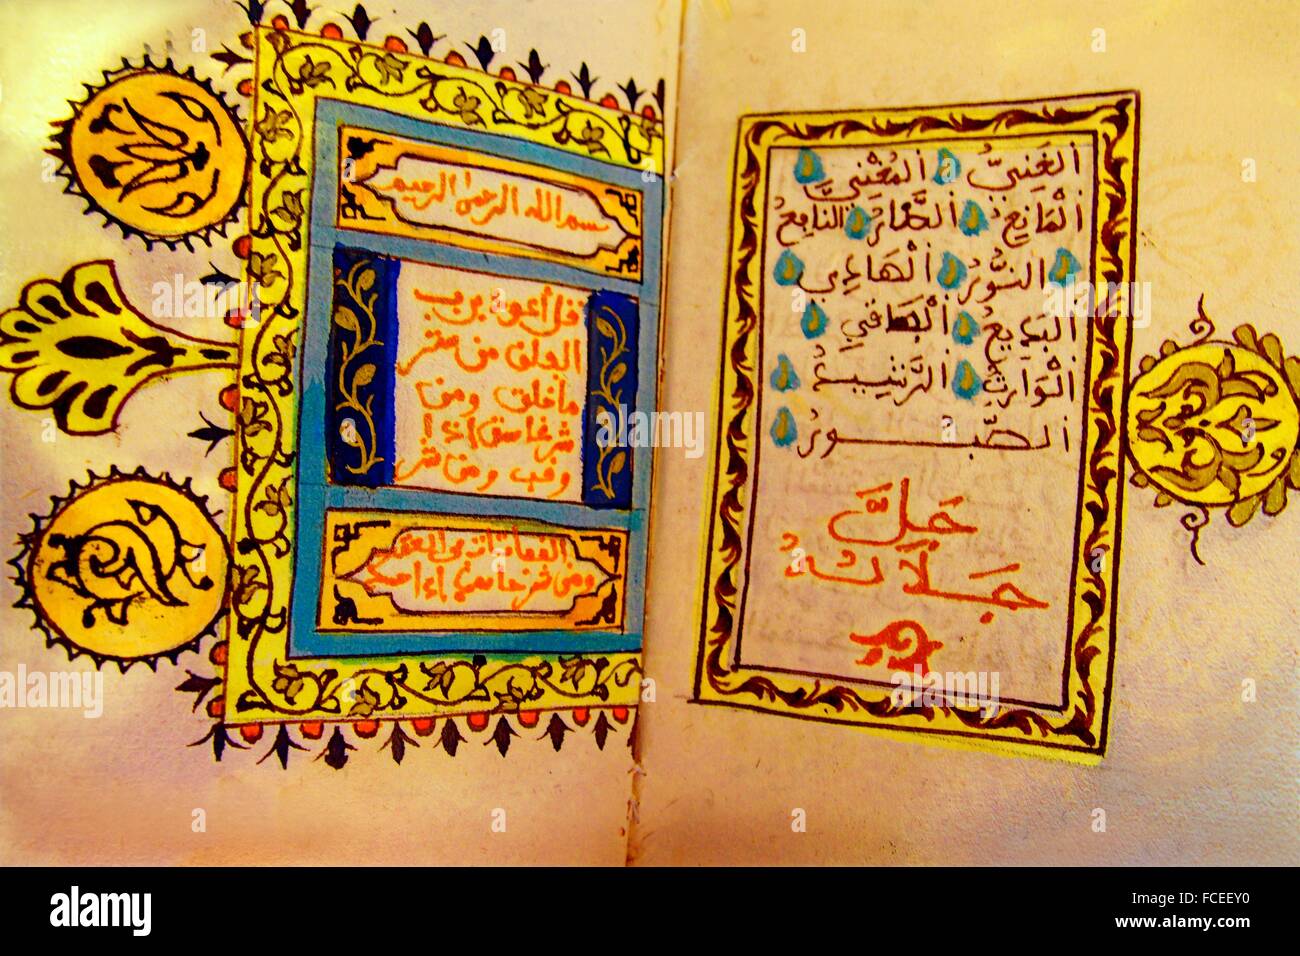 ألغَنِيُّ ألمُغْنِيُّ
ألْمَانِعُ ألضَّارُ النَافِعُ
النُّورُ ألْهَادِي
ألبَدِيعُ ألْبَاقِي
ألْوَارِثُ ألرَّشِيدُ
الصَّبُورُ
جَلَّ
جَلَالُهُ
بسم الله الرحمن الرحيم
قل أعوذ برب
الفلق من شر
ما خلق ومن
شر غاسق إذا
وقب ومن شر
النفاثات في العقد
ومن شر حاسد إذا حسد
alamy
Image ID: FCEEY0
www.alamy.com